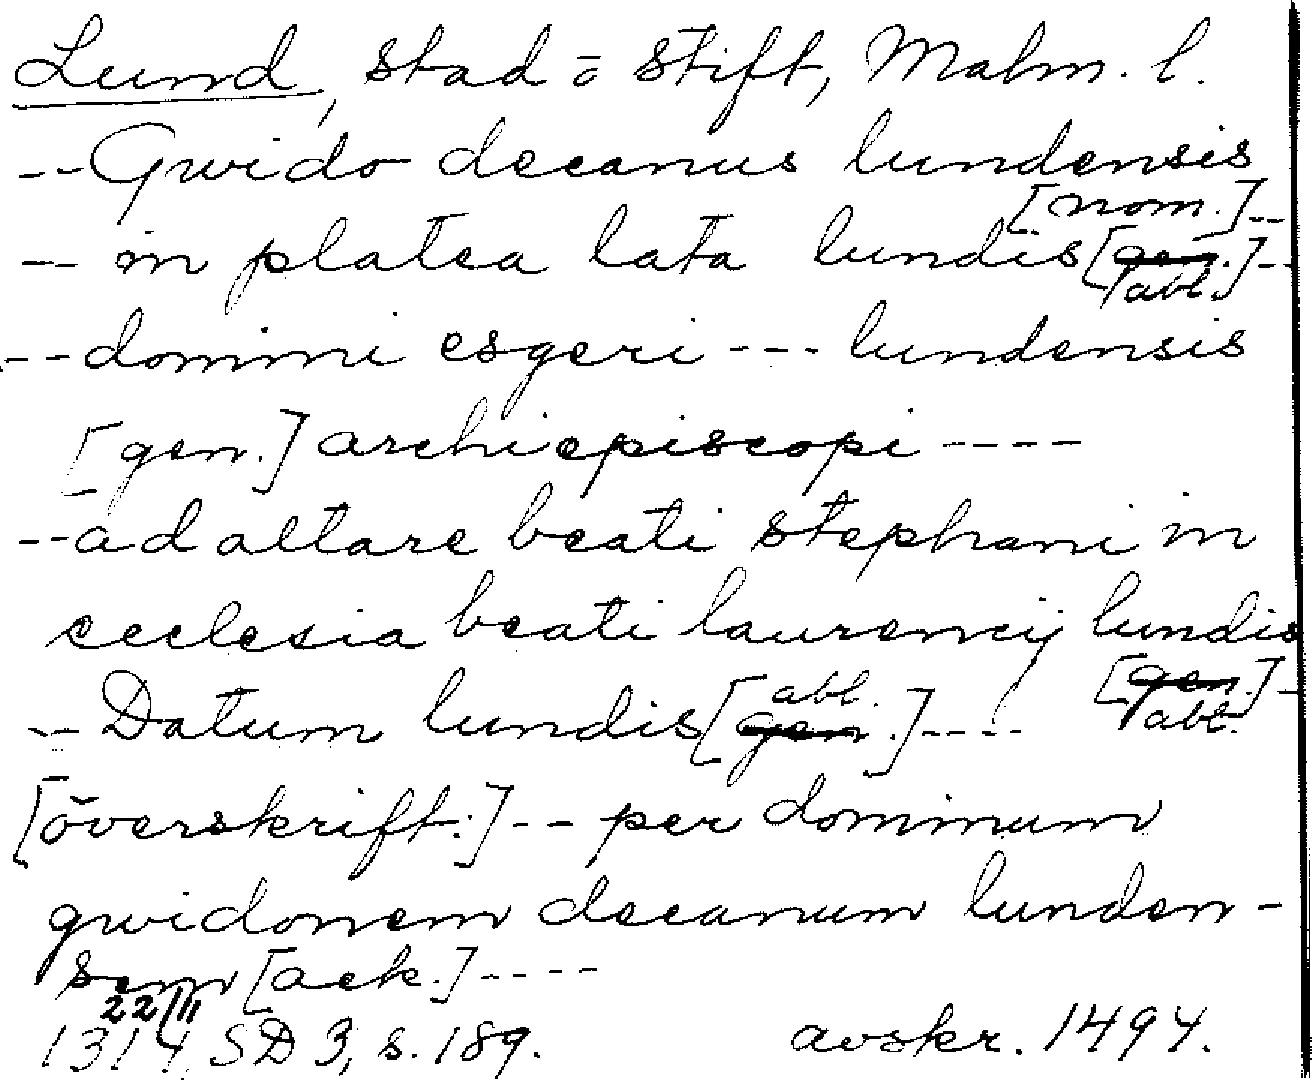 Lund, stad o stift, Malm. l.
-- Gwido decanus lundensis
[nom.]--
-- in platea lata lundis [gen.]--
abl.
-- domini esgeri --- lundensis
[gen.] archiepiscopi ----
-- ad altare beati stephani in
ecclesia beati laurencij lundis
[gen.]-
abl.
-- Datum lundis [gen.]----
abl.
[överskrift:] --- per dominum
gwidonem decanum lunden-
sem [ack.]----
22/III
1314 SD 3, s. 189. avskr. 1494.